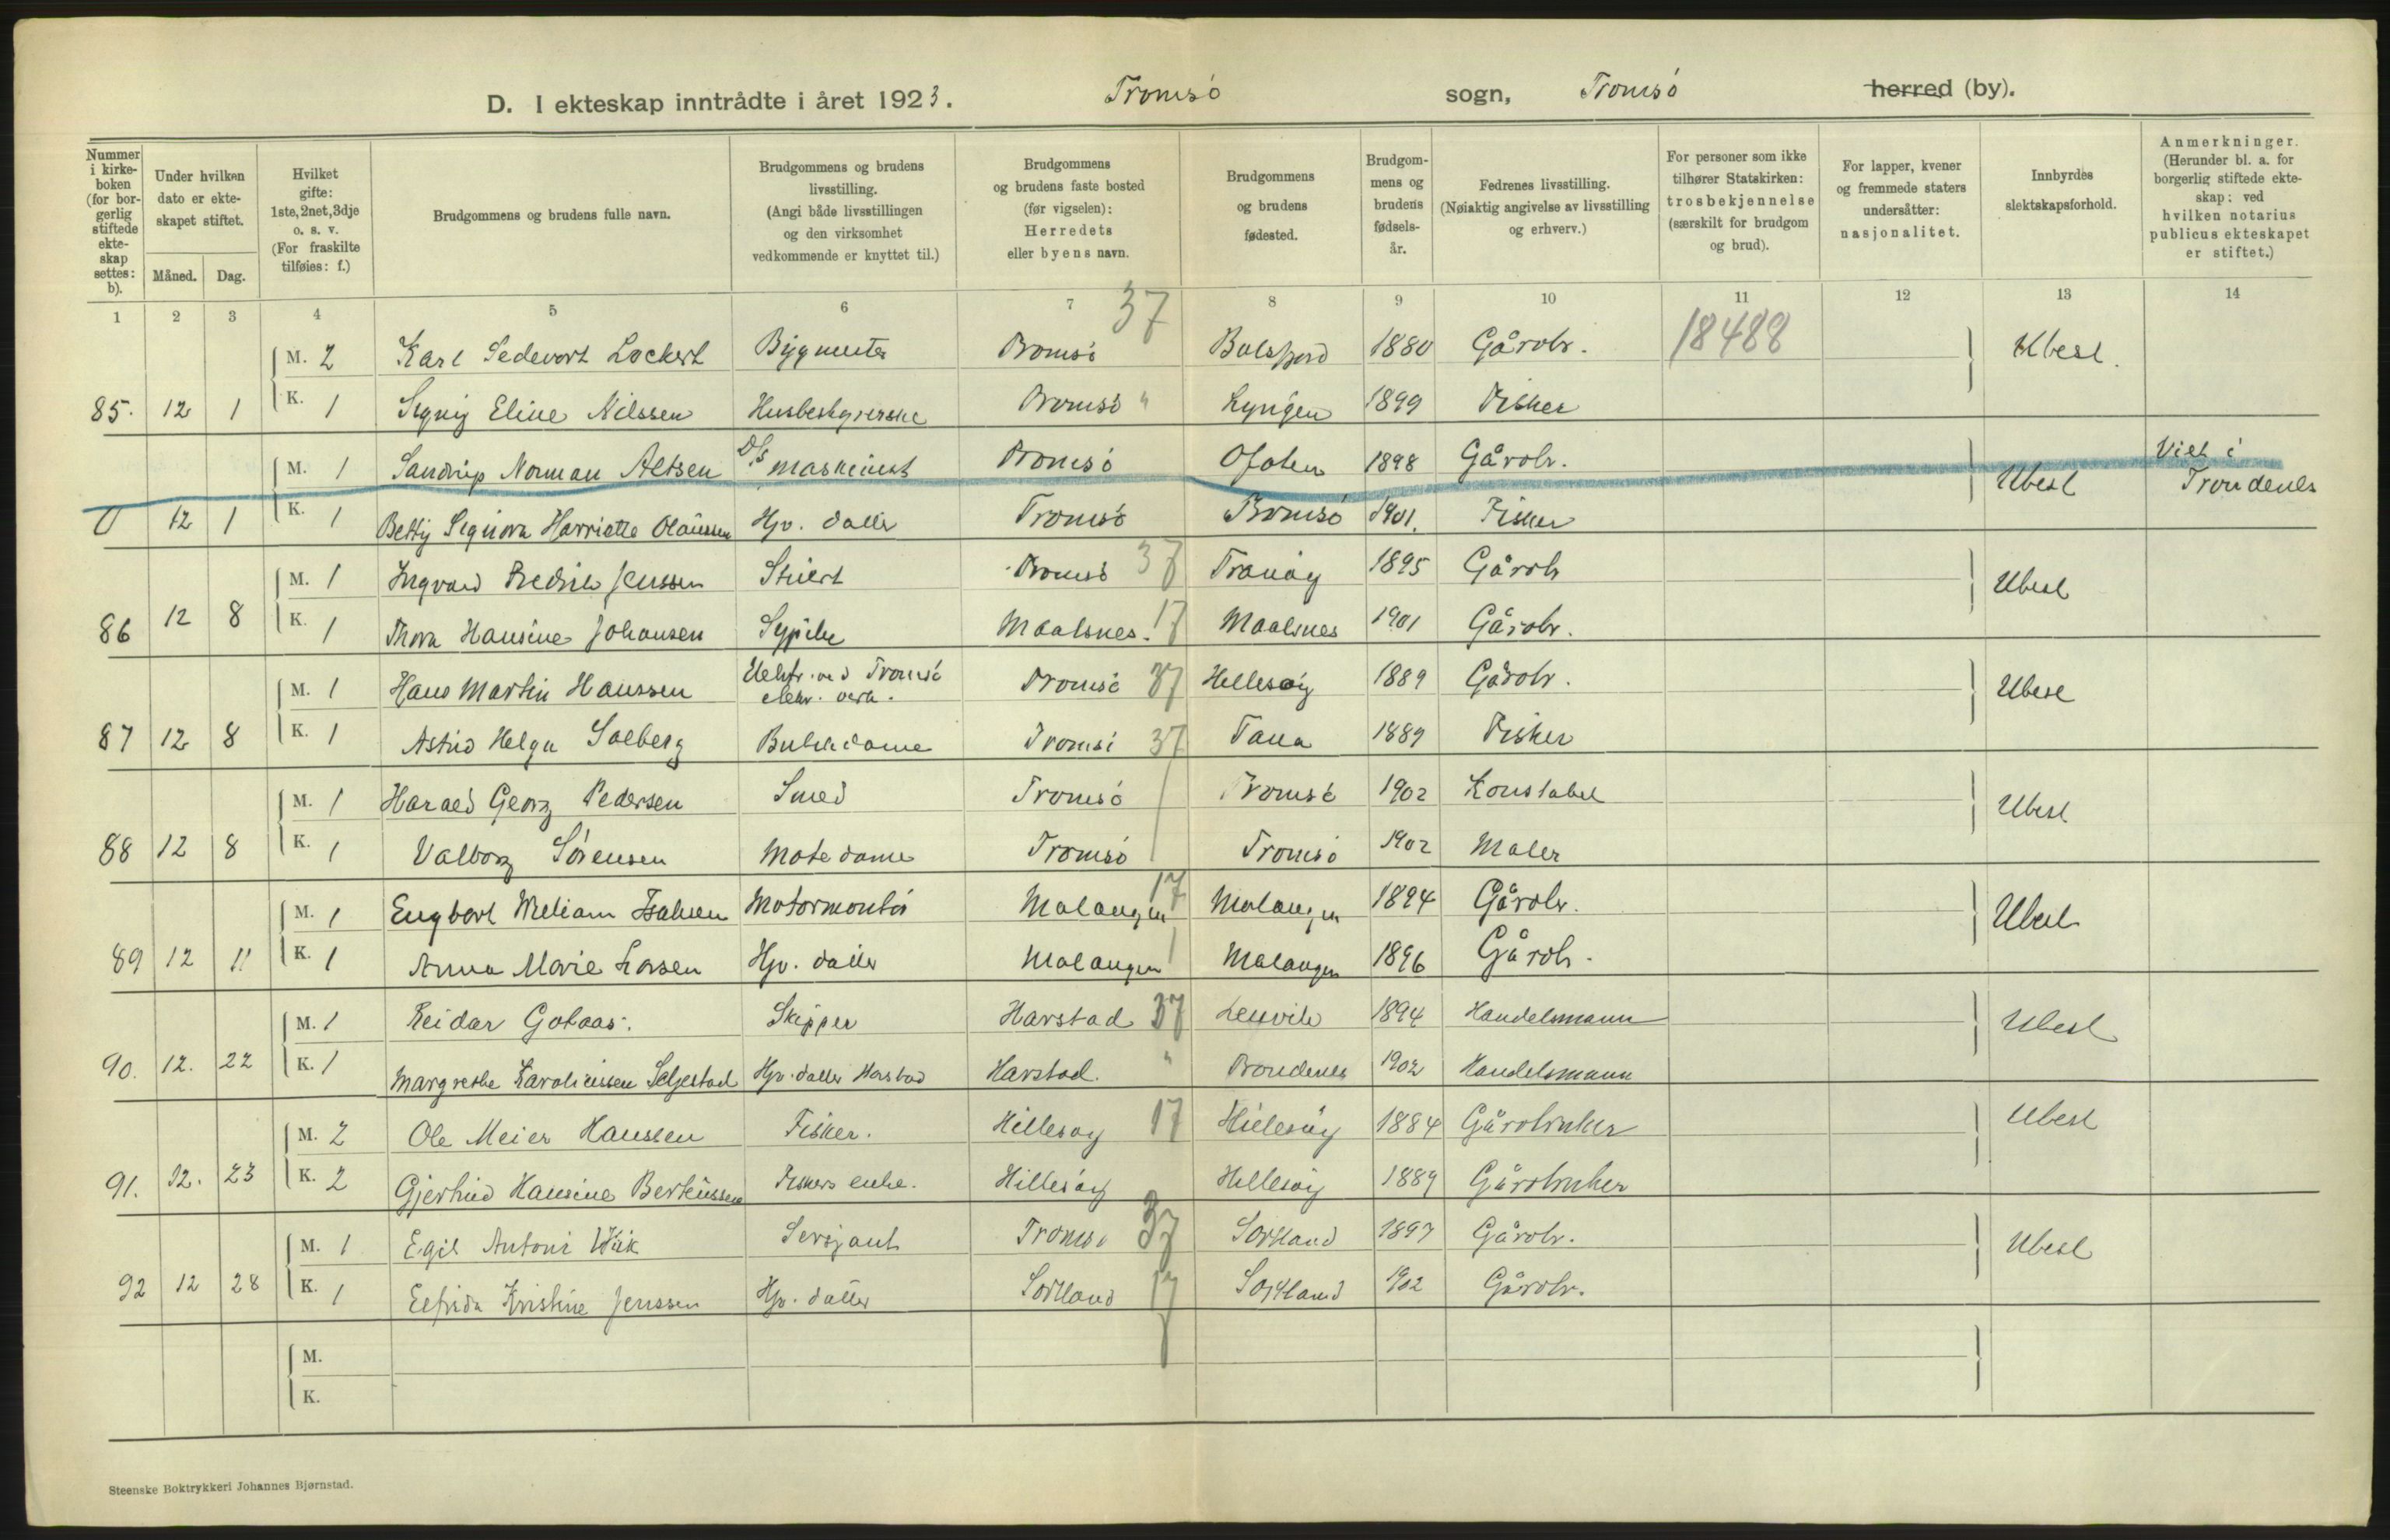 D. I ekteskap inntrådte i året 1923. Tromsö sogn, Tromsö herred (by).
Nummer i kirkeboken (for borgerlig stiftede ekteskap settes: b).
Under hvilken dato er ekteskapet stiftet.
Måned. Dag.
Hvilket gifte: 1ste, 2net, 3dje o. s. v. (For fraskilte tilføies: f.)
Brudgommens og brudens fulle navn.
Brudgommens og brudens livsstilling. (Angi både livsstillingen og den virksomhet vedkommende er knyttet til.)
Brudgommens og brudens faste bosted (før vigselen): Herredets eller byens navn.
Brudgommens og brudens fødested.
Brudgommens og brudens fødselsår.
Fedrenes livsstilling. (Nøiaktig angivelse av livsstilling og erhverv.)
For personer som ikke tilhører Statskirken: trosbekjennelse (særskilt for brudgom og brud).
For lapper, kvener og fremmede staters undersåtter: nasjonalitet.
Innbyrdes slektskapsforhold.
Anmerkninger. (Herunder bl. a. for borgerlig stiftede ekteskap: ved hvilken notarius publicus ekteskapet er stiftet.)
1 2 3 4 5 6 7 8 9 10 11 12 13 14
37
M. 2 Karl Sedevart Lockert Bygmester Tromsö Balsfjord 1880 Gårdbr. 18488 Ubesl.
85. 12 1 K. 1 Signy Eline Nilssen Husbestyrerske Tromsö " Lyngen 1899 Fisker
M. 1 Norman Altsen D/S maskinist Tromsö Ofoten 1898 Gårdbr. Ubesl Viet i Trondenes
0 12 1 K. 1 Betty Signora Harriette Olaussen Hjv. datter Tromsö Tromsö 1901. Fisker
M. 1 Ingvard Fredrik Jenssen Stuert Tromsö 37 Tranöy 1895 Gårdb Ubesl
86 12 8 K. 1 Thora Hansine Johansen Sypike Maalsnes. 17 Maalsnes 1901 Gårdbr.
M. 1 Hans Martin Hanssen Elektr. ved Tromsö elektr. verk. Tromsö 37 Hellesöy 1889 Gårdbr. Ubesl
87 12 8 K. 1 Astrid Helga Solberg Butikdame Tromsö 37 Tana 1889 Fisker
M. 1 Harald Georg Pedersen Smed Tromsö Tromsö 1902 Konstabel Ubesl
88 12 8 K. 1 Valborg Sörensen Motedame Tromsö Tromsö 1902 Maler
M. 1 Engbart Wiliam Isaksen Motormontör Malangen 17 Malangen 1894 Gårdbr. Ubesl
89 12 11 K. 1 Anna Marie Larsen Hjv. datter Malangen Malangen 1896 Gårdb.
M. 1 Reidar Gotaas. Skipper Harstad 37 Lenvik 1894 Handelsmann Ubesl
90. 12. 22 K. 1 Margrethe Karolinssen Seljestad Hjv. datter Harstad Harstad. " Trondenes 1902 Handelsmann
M. 2 Ole Meier Hanssen Fisker. Hillesöy 17 Hillesöy 1884 Gårdbruker Ubesl
91. 12. 23 K. 2 Gjertrud Hansine Berteussen Fiskers enke. Hillesöy Hillesöy 1889 Gårdbruker
M. 1 Egil Antoni Wik Sersjant Tromsö 37 Sortland 1897 Gårdbr. Ubesl
92 12 28 K. 1 Elfrida Kristine Jenssen Hjv. datter Sortland 17 Sortland 1902 Gårdbr.
M.
K.
Steenske Boktrykkeri Johannes Bjørnstad.